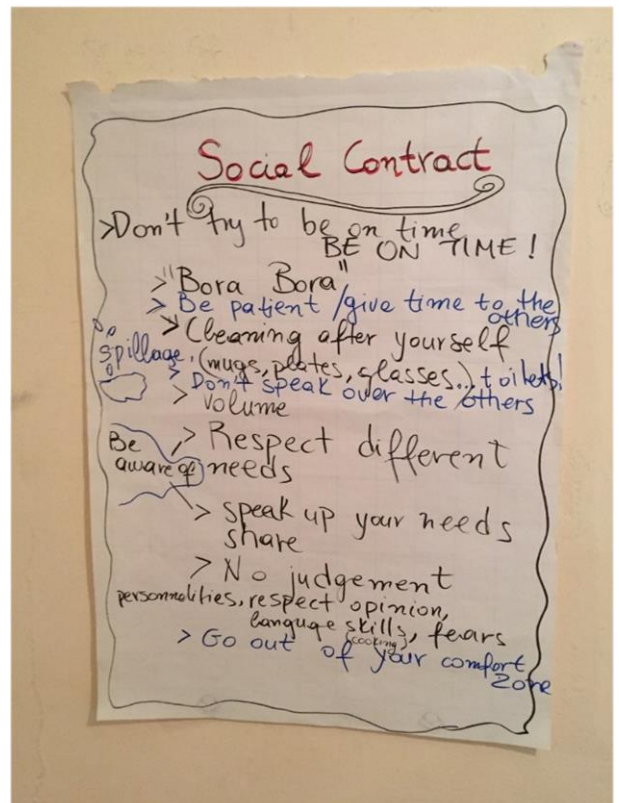 Social Contract
>Don't try to be on time
BE ON TIME!
>"Bora Bora"
> Be patient /give time to the
others
> Cleaning after yourself
spillage, (mugs, plates, glasses...) toilets!
> Don't speak over the others
> Volume
> Respect different
Be aware of needs
> speak up your needs
share
> No judgement
personnalities, respect opinion,
languge skills, fears
(cooking)
> Go out of your comfort
zone